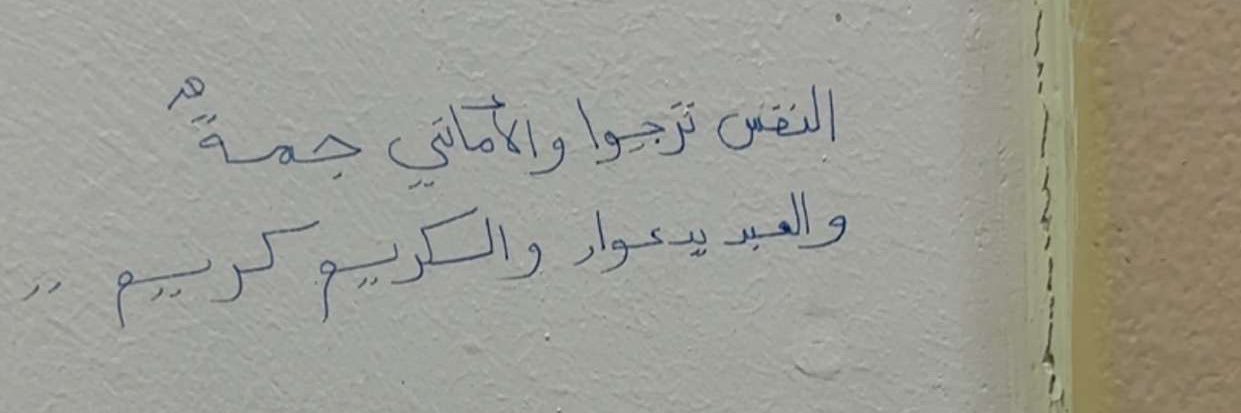 النفس ترجوا والأماني جمةٌ
والعبد يدعوا والكريم كريم ..